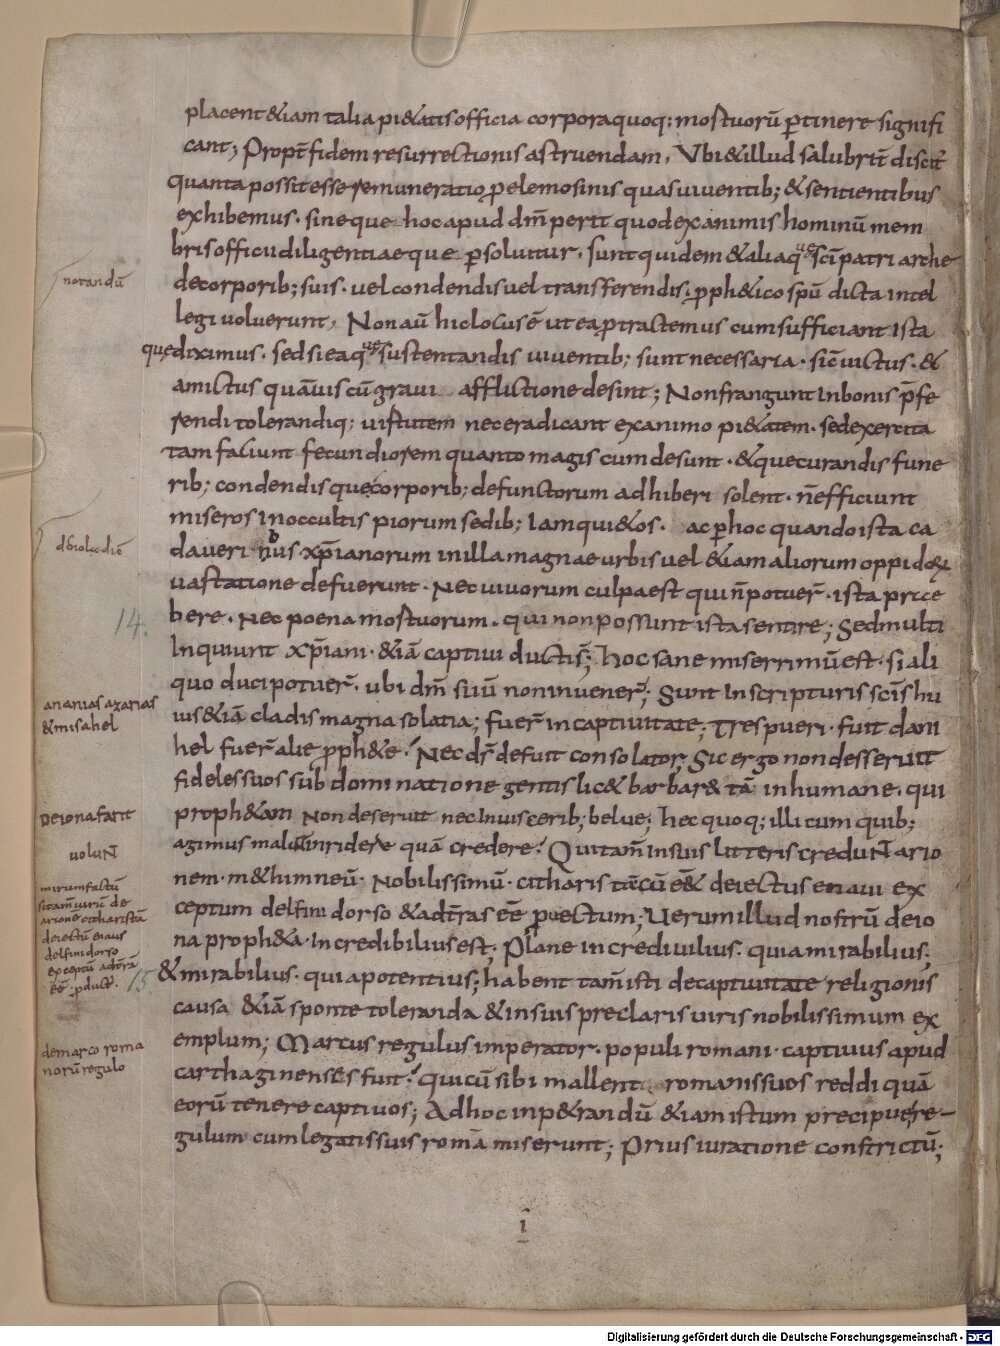 placent &iam talia pi&atis officia corpora quoq; mortuorū ꝑtinere signifi
cant; Propt̄ fidem resurrectionis astruendam. Vbi & illud salubrit̄ discit̄
quanta possit esse remuneratio ꝓ elemosinis quas uiuentib; & sentientibus
exhibemus. si neque hoc apud dm̄ perit quod exanimis hominū mem
bris officii diligentiaeque ꝑsoluitur. sunt quidem & alia q̄ue sc̄i patriarche
de corporib; suis. uel condendis uel transferendis. ꝓph&ico spū dicta intel
notandū
legi uoluerunt, Non aū hic locus ē ut ea ꝑtractemus cum sufficiant ista
que diximus. sed si ea q̄ue sustentandis uiuentib; sunt necessaria. sic̄ uictus. &
amictus quāuis cū graui afflictione desint; Non frangunt in bonis p̄fe
rendi tolerandiq; uirtutem nec eradicant ex animo pi&atem. sed exercita
tam faciunt fecundiorem quanto magis cum desunt. & que curandis fune
rib; condendisque corporib; defunctorum adhiberi solent. n̄ efficiunt
miseros in occultis piorum sedib; iam qui&os. ac ꝑ hoc quando ista ca
daueribus xp̄ianorum in illa magnae urbis uel &iam aliorum oppidoꝝ
uastatione defuerunt. Nec uiuorum culpa est qui n̄ potuer̄. ista prae
14.
bere. Nec poena mortuorum. qui non possunt ista sentire; Sed multi
inquiunt xp̄iani. &iā captiui ducti s̄; hoc sane miserrimū est. si ali
quo duci potuer̄. ubi dm̄ suū non inuener̄; Sunt in scripturis sc̄is hu
ananias azarias
& misahel
ius &iā cladis magna solatia; fuer̄ in captiuitate; Tres pueri. fuit dani
hel fuer̄ alie ꝓph&e. Nec dr̄ defuit consolator; Sic ergo non desseruit
fideles suos sub dominatione gentis lic& barbar& tā inhumane. qui
De iona fatit
proph&am non deseruit nec in uiscerib; belue; hec quoq; illi cum quib;
agimus malunt inridere quā credere. Qui tam̄ in suis litteris creduNt ario
uoluN
nem m&himneū. Nobilissimū. citharis tā cū eēt deiectus e naui ex
mirum factū
si tam uirū de
arione citharistā
deiectū e naui
delfini dorso
exceptū ad t̄rā
eē ꝓduct.
ceptum delfini dorso & ad t̄ras eē ꝓuectum; Verum illud nostrū de io
na proph&a. incredibilius est; Plane incrediuilius. quia mirabilius;
15.
& mirabilius. quia potentius; habent tam̄ isti de captiuitate religionis
causa &iā sponte toleranda & in suis preclaris uiris nobilissimum ex
de marco roma
norū regulo
emplum; Marcus regulus imperator. populi romani. captiuus apud
carthaginenses fuit. qui cū sibi mallent romanis suos reddi quā
eorū tenere captiuos; Ad hoc inp&randū &iam istum precipue re-
gulum cum legatis suis romā miserunt; Prius iuratione constrictū;
i
Digitalisierung gefördert durch die Deutsche Forschungsgemeinschaft - DFG